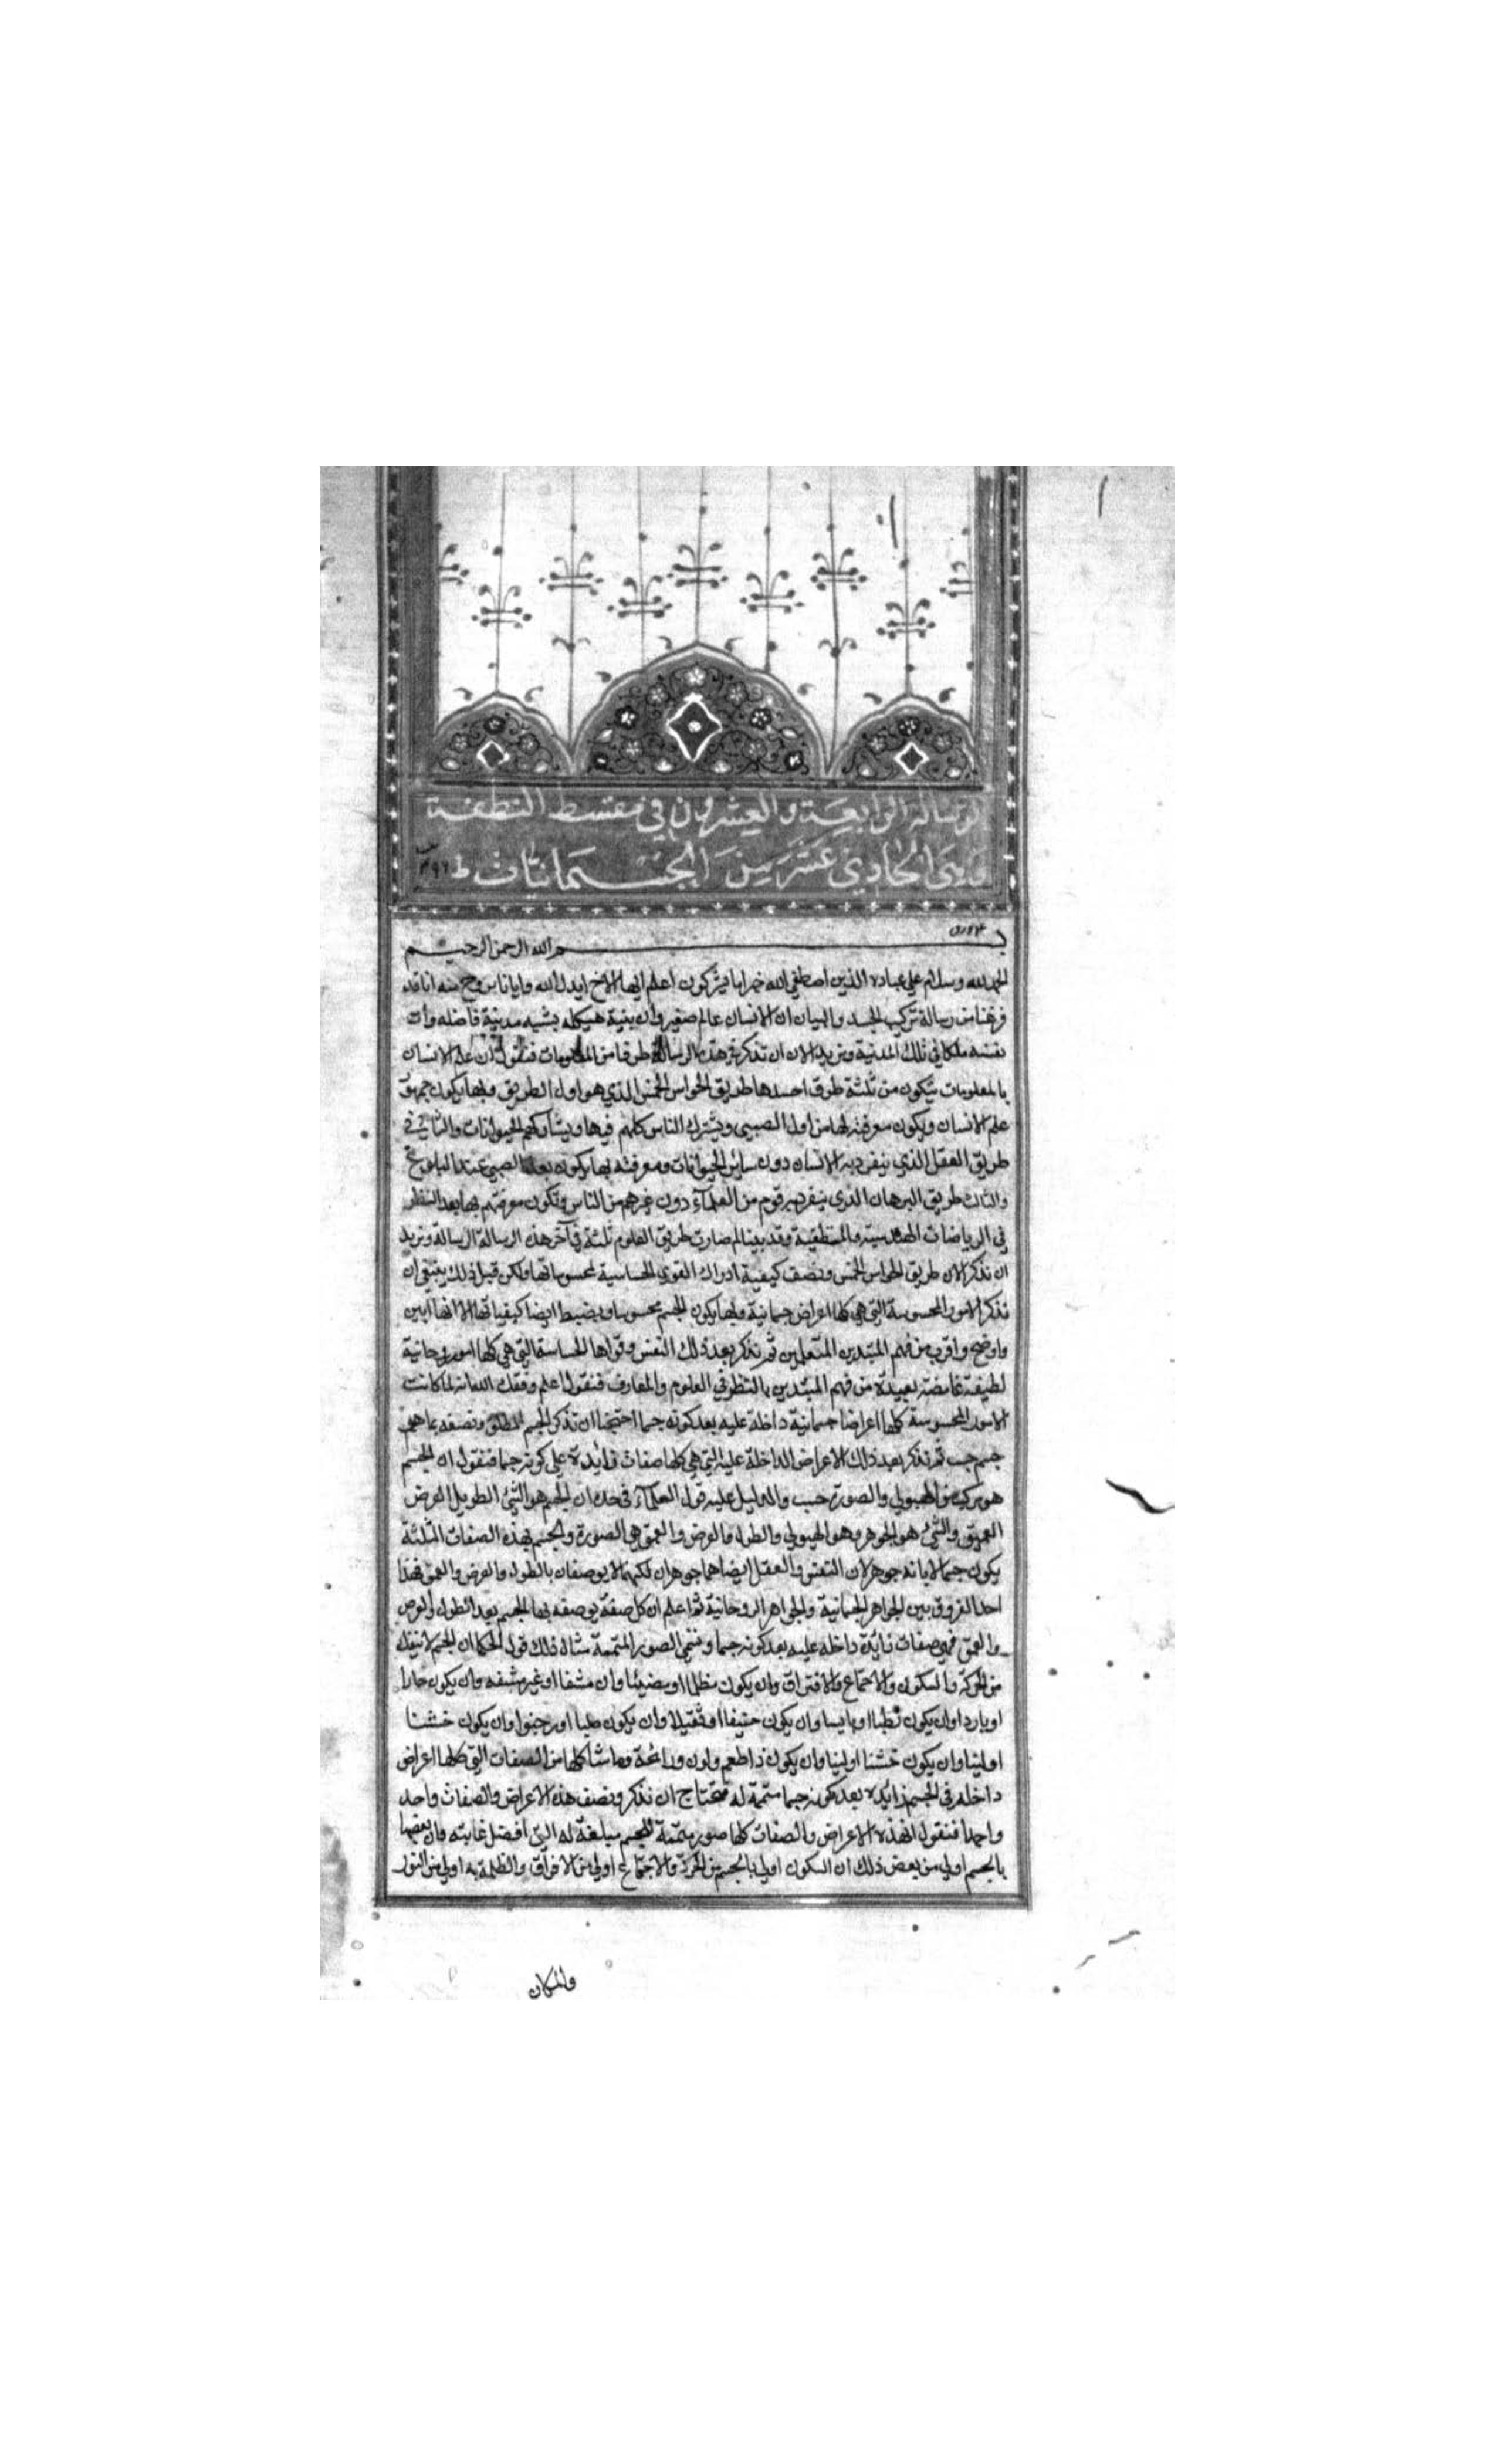 الرسالة الرابعة والعشرون في مقسط النطفة
وهي الحادي عشر من الجسمانيات
بسم الله الرحمن الرحيم
الحمد لله وسلام علي عباده الذين اصطفي الله خير اما يشركون اعلم ايها الاخ ايدك الله وايانا بروح منه انا قد
فرغنا من رسالة تركيب الجسد والبيان ان الانسان عالم صغير وان بنية هيكله يشبه مدينة فاضله وان
نفسه ملكا في تلك المدينة ونريد الان ان نذكر في هذه الرسالة طرفا من المعلومات فنقول ان علم الانسان
بالمعلومات يتكون من ثلثة طرق احدها طريق الحواس الخمس الذي هو اول الطريق وبها يكون جمهور
علم الانسان ويكون معرفته لها من اول الصبي ويشترك الناس كلهم فيها ويشاركهم الحيوانات والثاني في
طريق العقل الذي ينفرد به الانسان دون ساير الحيوانات ومعرفته بها يكون بعد الصبي عند البلوغ
والثالث طريق البرهان الذي ينفرد به قوم من العلماء دون غيرهم من الناس وتكون معرفتهم بها بعد النظر
في الرياضات الهندسية والمنطقية وقد بينا لم صارت طريق العلوم ثلثة في آخر هذه الرسالة الرسالة ونريد
ان نذكر الان طريق الحواس الخمس ونصف كيفية ادراك القوي الحساسية لمحسوساتها ولكن قبل ذلك ينبغي ان
نذكر الامور المحسوسة التي هي كلها اعراض جسمانية وبها يكون الجسم محسوسا ونضبط ايضا كيفياتها الا انها ابين
واوضح واقرب من فهم المبتدين المتعلمين ثم نذكر بعد ذلك النفس وقواها الحساسة التي هي كلها امور روحانية
لطيفة غامضة بعيدة من فهم المبتدين بالنظر في العلوم والمعارف فنقول اعلم وفقك الله انه لما كانت
الامور المحسوسة كلها اعراضا جسمانية داخلة عليه بعد كونه جسما احتجنا ان نذكر الجسم المطلق ونصفه بما هو
جسم حسب ثم نذكر بعد ذلك الاعراض الداخلة عليه التي هي كلها صفات زايدة علي كونه جسما فنقول ان الجسم
هو مركب من الهيولي والصورة حسب والدليل عليه قول الحكماء في حده ان الجسم هو الشئ الطويل العرض
العميق والشئ هو الجوهر وهو الهيولي والطول والعرض والعمق هي الصورة والجسم بهذه الصفات الثلثة
يكون جسما لا بانه جوهر لان النفس والعقل ايضا هما جوهران لكنهما لا يوصفان بالطول والعرض والعمق فهذا
احد الفروق بين الجواهر الجسمانية والجواهر الروحانية ثم اعلم ان كل صفة يوصف بها الجسم بعد الطول والعرض
والعمق فهي صفات زائدة داخلة عليه بعد كونه جسما وتسمي الصور المتممة مثال ذلك قول الحكما ان الجسم لا ينفك
من الحركة والسكون والاجتماع والافتراق وان يكون مظلما او مضيئا وان مشفا او غير مشفه وان يكون حارا
او باردا وان يكون رطبا او يابسا وان يكون خفيفا او ثقيلا وان يكون صلبا او رخوا وان يكون خشنا
او لينا وان يكون خشنا او لينا وان يكون ذا طعم ولون ورائحة وما شاكلها من الصفات التي كلها اعراض
داخله في الجسم زائدة بعد كونه جسما متممة له فنحتاج ان نذكر ونصف هذه الاعراض والصفات واحد
واحدا فنقول ان هذه الاعراض والصفات كلها صور متممة للجسم مبلغة له الي افضل غاياته وان بعضها
بالجسم اولي من بعض ذلك ان السكون اولي بالجسم من الحركة والاجتماع اولي من الافراق والظلمة به اولي من النور
والمكان